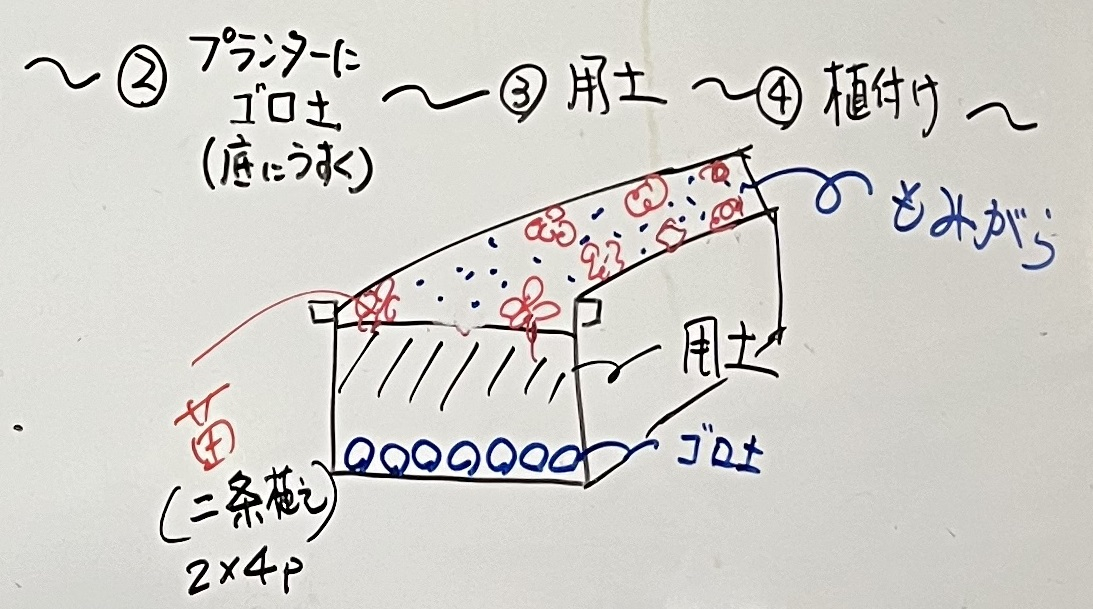 〜② プランターに
ゴロ土
(底にうすく)
〜③ 用土
〜④ 植付け〜
もみがら
用土
ゴロ土
苗
(二条植え)
2×4P